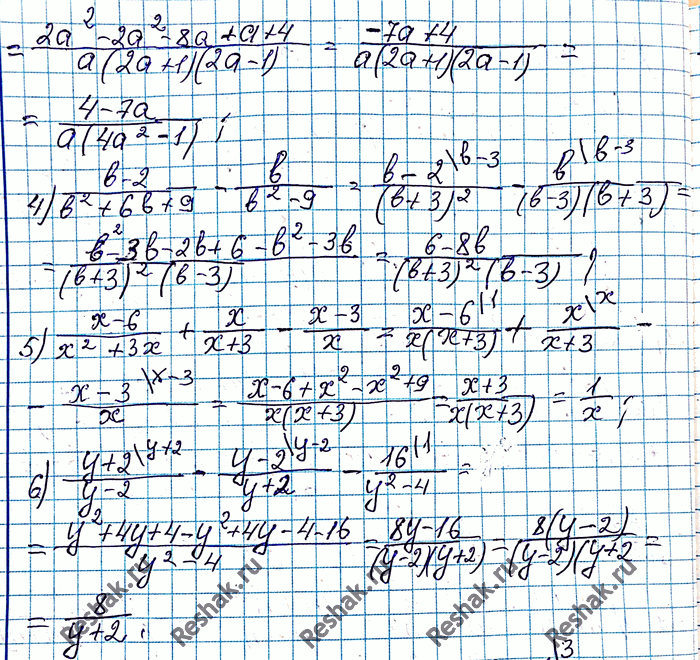 = (2a² - 2a² - 8a + a + 4)/(a(2a+1)(2a-1)) = (-7a + 4)/(a(2a+1)(2a-1)) =
= (4 - 7a)/(a(4a² - 1));
4) (b - 2)/(b² + 6b + 9) - b/(b² - 9) = (b - 2 \b-3)/((b+3)²) - (b \b-3)/((b-3)(b+3)) =
= (b² - 3b - 2b + 6 - b² - 3b)/((b+3)²(b-3)) = (6 - 8b)/((b+3)²(b-3));
5) (x-6)/(x² + 3x) + x/(x+3) - (x-3)/x = (x-6 \1)/(x(x+3)) + (x \x)/(x+3) -
- (x-3 \x-3)/x = (x-6+x²-x²+9)/(x(x+3)) = (x+3)/(x(x+3)) = 1/x;
6) (y+2 \y+2)/(y-2) - (y-2 \y-2)/(y+2) - (16 \1)/(y²-4) =
= (y²+4y+4-y²+4y-4-16)/(y²-4) = (8y-16)/((y-2)(y+2)) = (8(y-2))/((y-2)(y+2 =
= 8/(y+2);
Reshak.ru Reshak.ru Reshak.ru Reshak.ru Reshak.ru